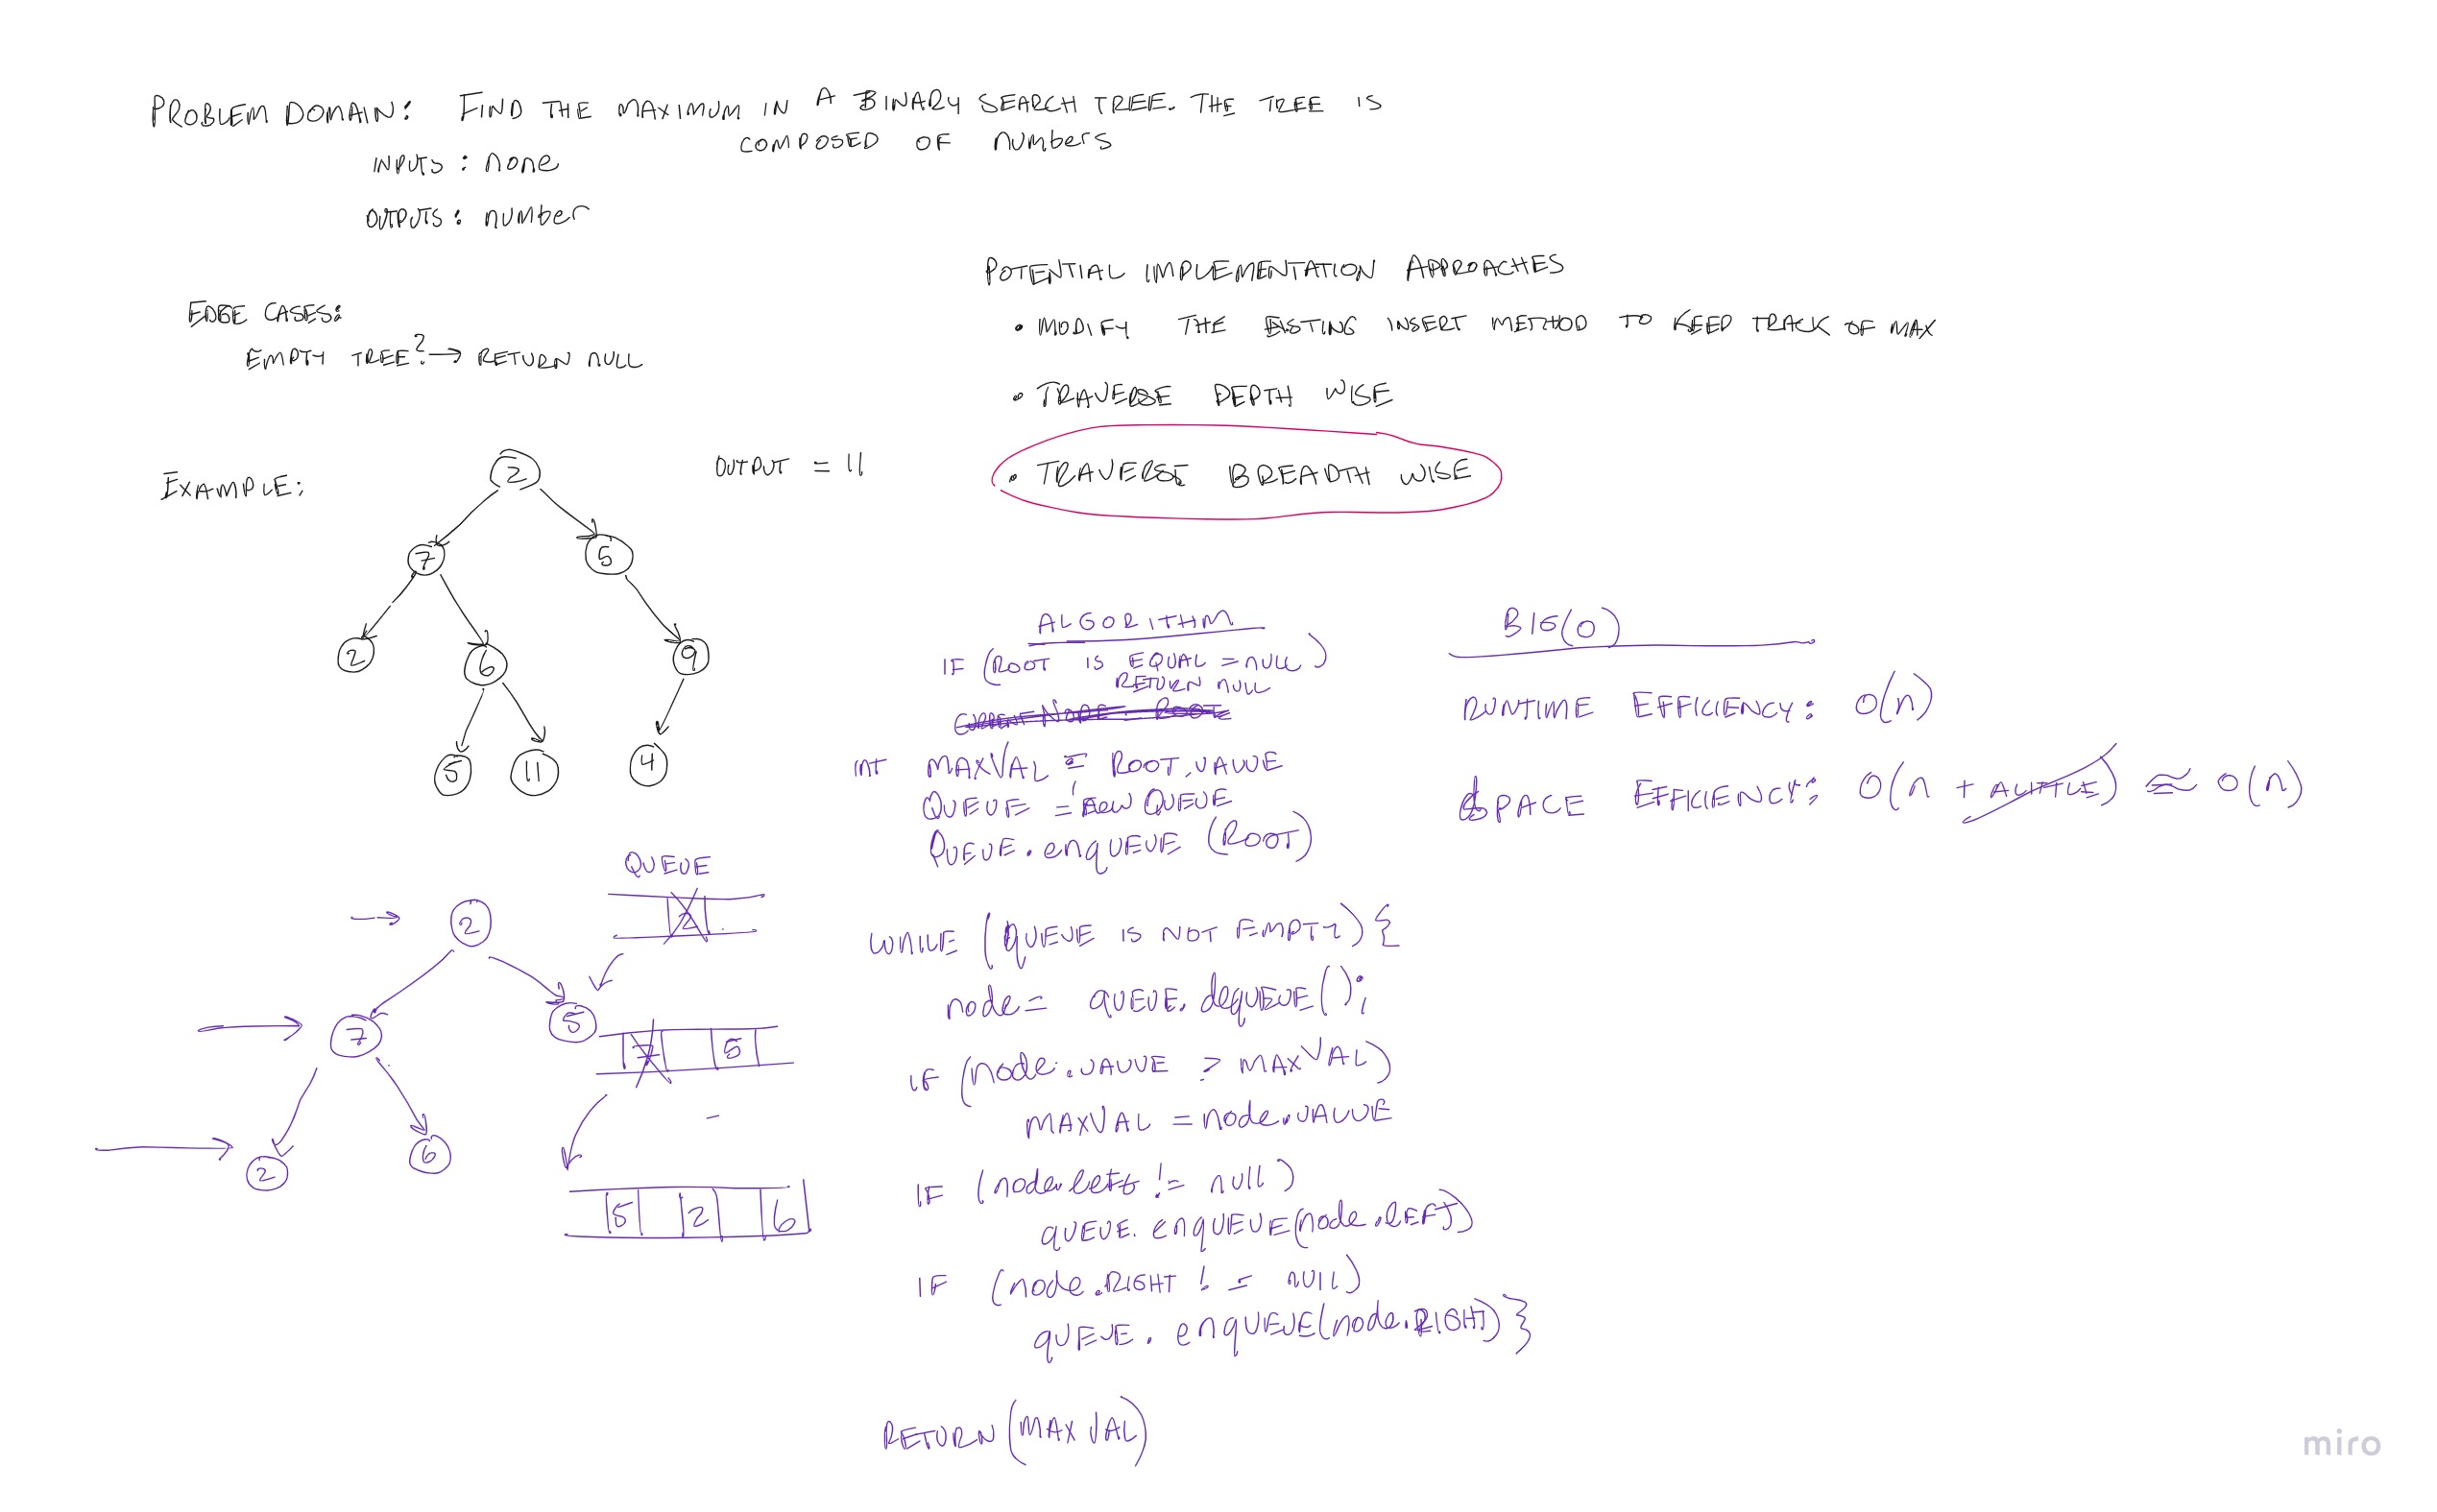 PROBLEM DOMAIN: FIND THE MAXIMUM IN A BINARY SEARCH TREE. THE TREE IS
COMPOSED OF numbers
INPUTS: none
OUTPUTS: number
EDGE CASES:
EMPTY TREE? → RETURN NULL
POTENTIAL IMPLEMENTATION APPROACHES
• MODIFY THE EXISTING INSERT METHOD TO KEEP TRACK OF MAX
• TRAVERSE DEPTH WISE
• TRAVERSE BREADTH WISE
EXAMPLE:
OUTPUT = 11
2
7 5
2 6 9
5 11 4
QUEUE
2
2
7 5
7 5
2 6
5 2 6
ALGORITHM
IF (ROOT IS EQUAL = NULL)
RETURN NULL
CURRENT NODE = ROOT
INT MAXVAL = ROOT.VALUE
QUEUE = new QUEUE
QUEUE.enqUEUE (ROOT)
WHILE (QUEUE IS NOT EMPTY) {
node = QUEUE.deqUEUE();
IF (node.VALUE > MAXVAL)
MAXVAL = node.VALUE
IF (node.left != null)
QUEUE.enqUEUE(node.LEFT)
IF (node.RIGHT != null)
QUEUE.enqUEUE(node.RIGHT) }
RETURN (MAXVAL)
BIG(O)
RUNTIME EFFICIENCY: O(n)
SPACE EFFICIENCY: O(n + A LITTLE) ≈ O(n)
miro